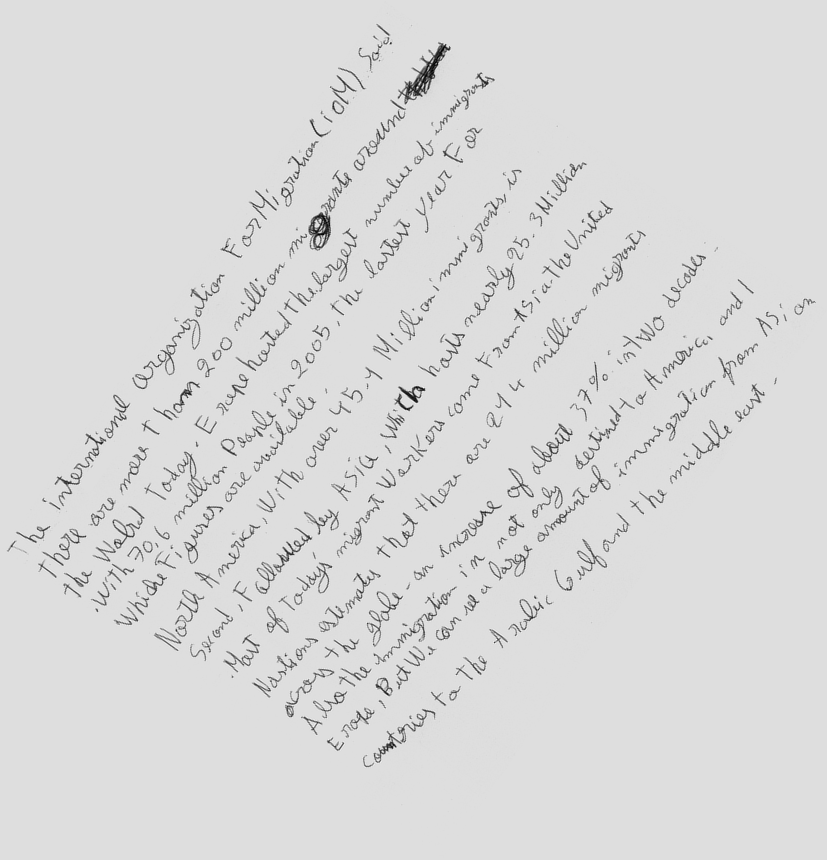 The international organization For Migration (ioM) Said
there are more tham 200 million migrants around
the Wolrd Today. Erope hosted the largest number of immigrants
.With 70,6 million People in 2005, the lastest year For
Whiche Figures are available.
North America, With over 45.4 Million immigrants, is
Second, Followed by ASia, Which hosts nearly 25.3 Million
.Most of Todays migrant Workers come From ASia. the United
Nastions estemates that there are 214 million migrants
across the globe - an increase of about 37% in tWo decades.
Also the immigration in not only destined to America, and
Erope, But We can see a large amount of immigration from ASian
countries to the Arabic Gulf and the middle east.